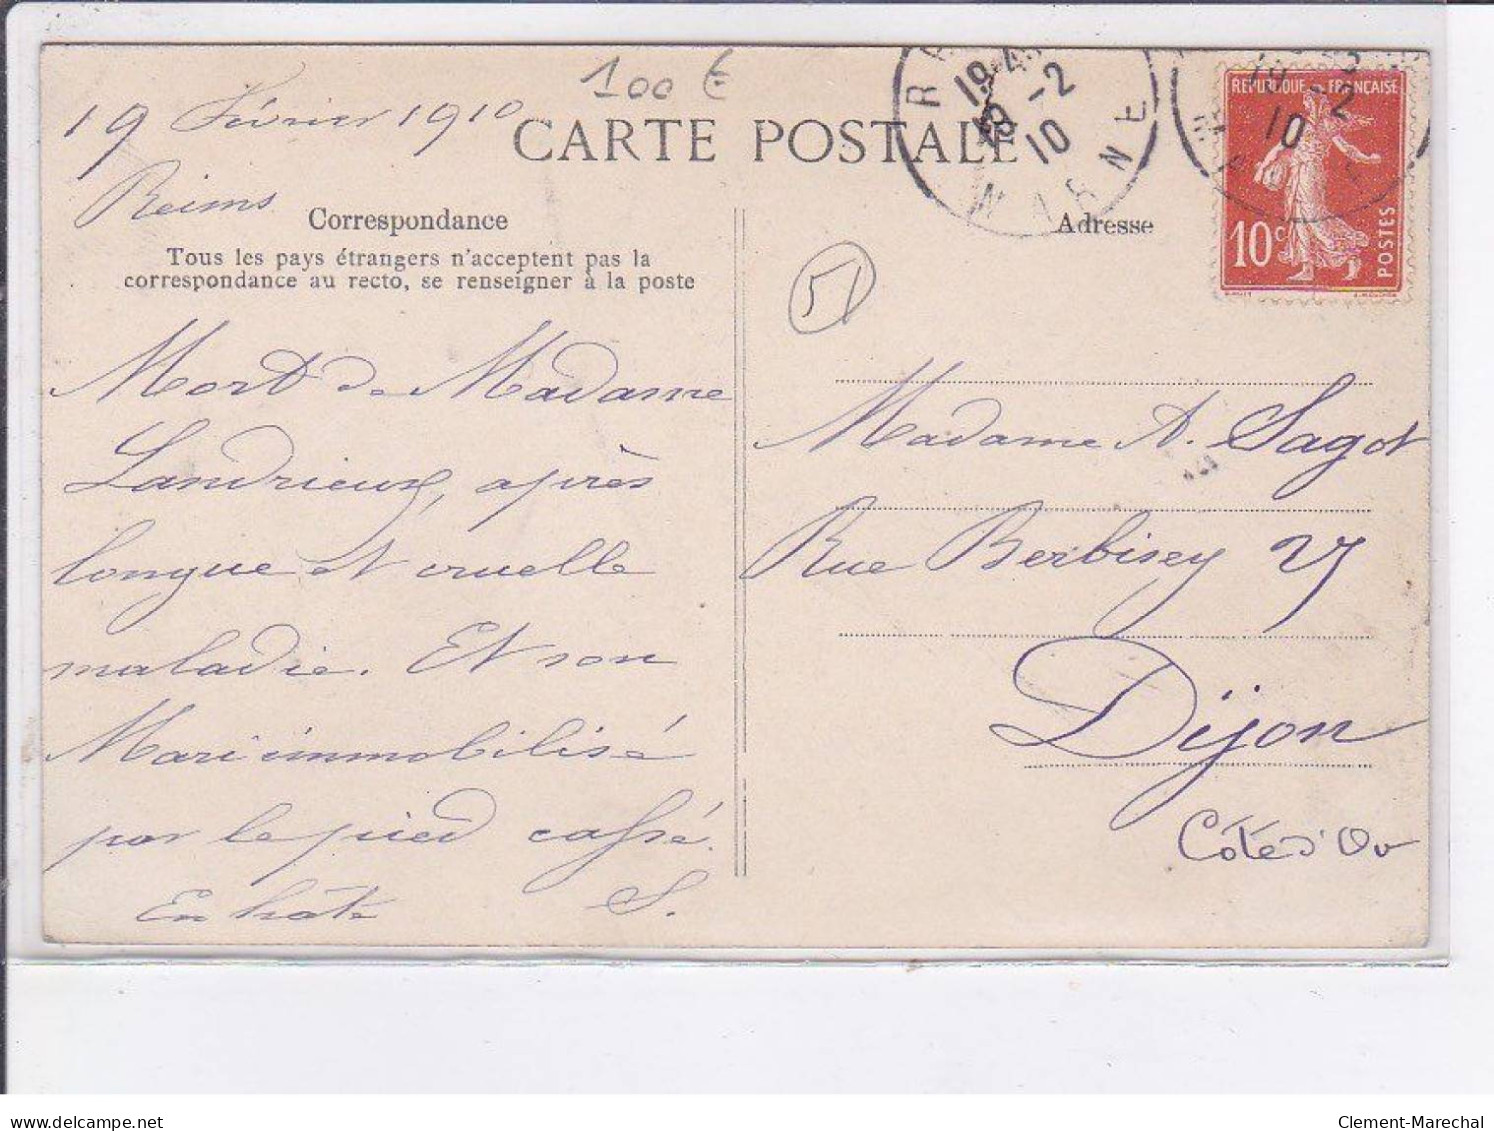 100 €
19 Février 1910
CARTE POSTALE
Reims
Correspondance
Tous les pays étrangers n'acceptent pas la
correspondance au recto, se renseigner à la poste
Mort de Madame
Landrieux, après
longue et cruelle
maladie. Et son
Mari immobilisé
par le pied cassé.
En hâte S.
MARNE
19 -2
10
Adresse
RÉPUBLIQUE FRANÇAISE
10c
POSTES
51
Madame A. Sagot
Rue Berbisey 27
Dijon
Côte d'Or
delcampe.net
Clement-Marechal